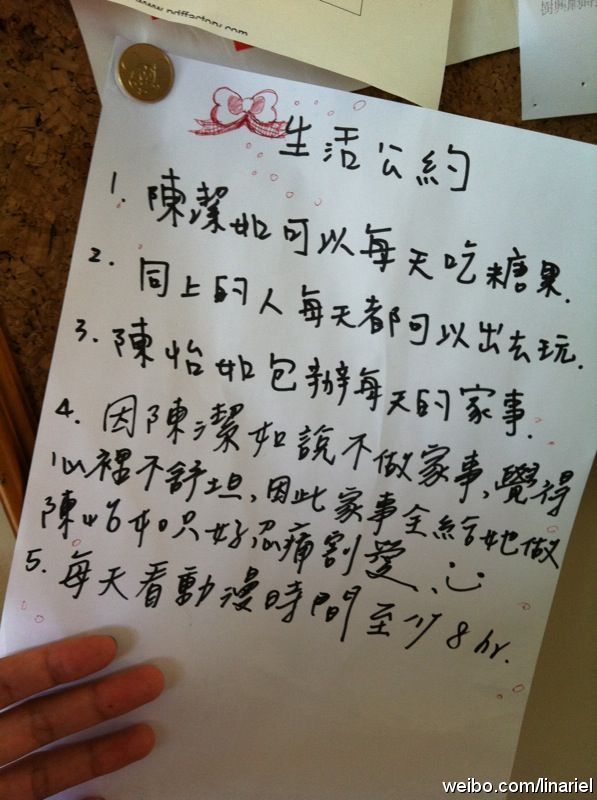 www.pdffactory.com
生活公約
1. 陳潔如可以每天吃糖果.
2. 同上的人每天都可以出去玩.
3. 陳怡如包辦每天的家事.
4. 因陳潔如說不做家事,覺得
心裡不舒坦,因此家事全給她做
陳怡如只好忍痛割愛、
5. 每天看動漫時間至少8hr.
weibo.com/linariel